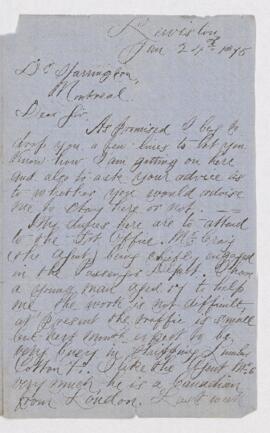 Lewiston
Jan 24th 1875
Dr Harrington,
Montreal.
Dear Sir.
As promised I beg to
drop you a few lines to let you
know how I am getting on here
and also to ask your advice as
to whether you would advise
me to stay here or not
My duties here are to attend
to the Office. Mr Craig
(the Agent) being chiefly engaged
in the Passenger Depart. I have
a young man aged 17 to help
me the work is not difficult
at present the traffic is small
but next month expect to be
very busy in shipping Lumber
Cotton &c. I like the Agent
very much he is a Canadian
from London. Last week